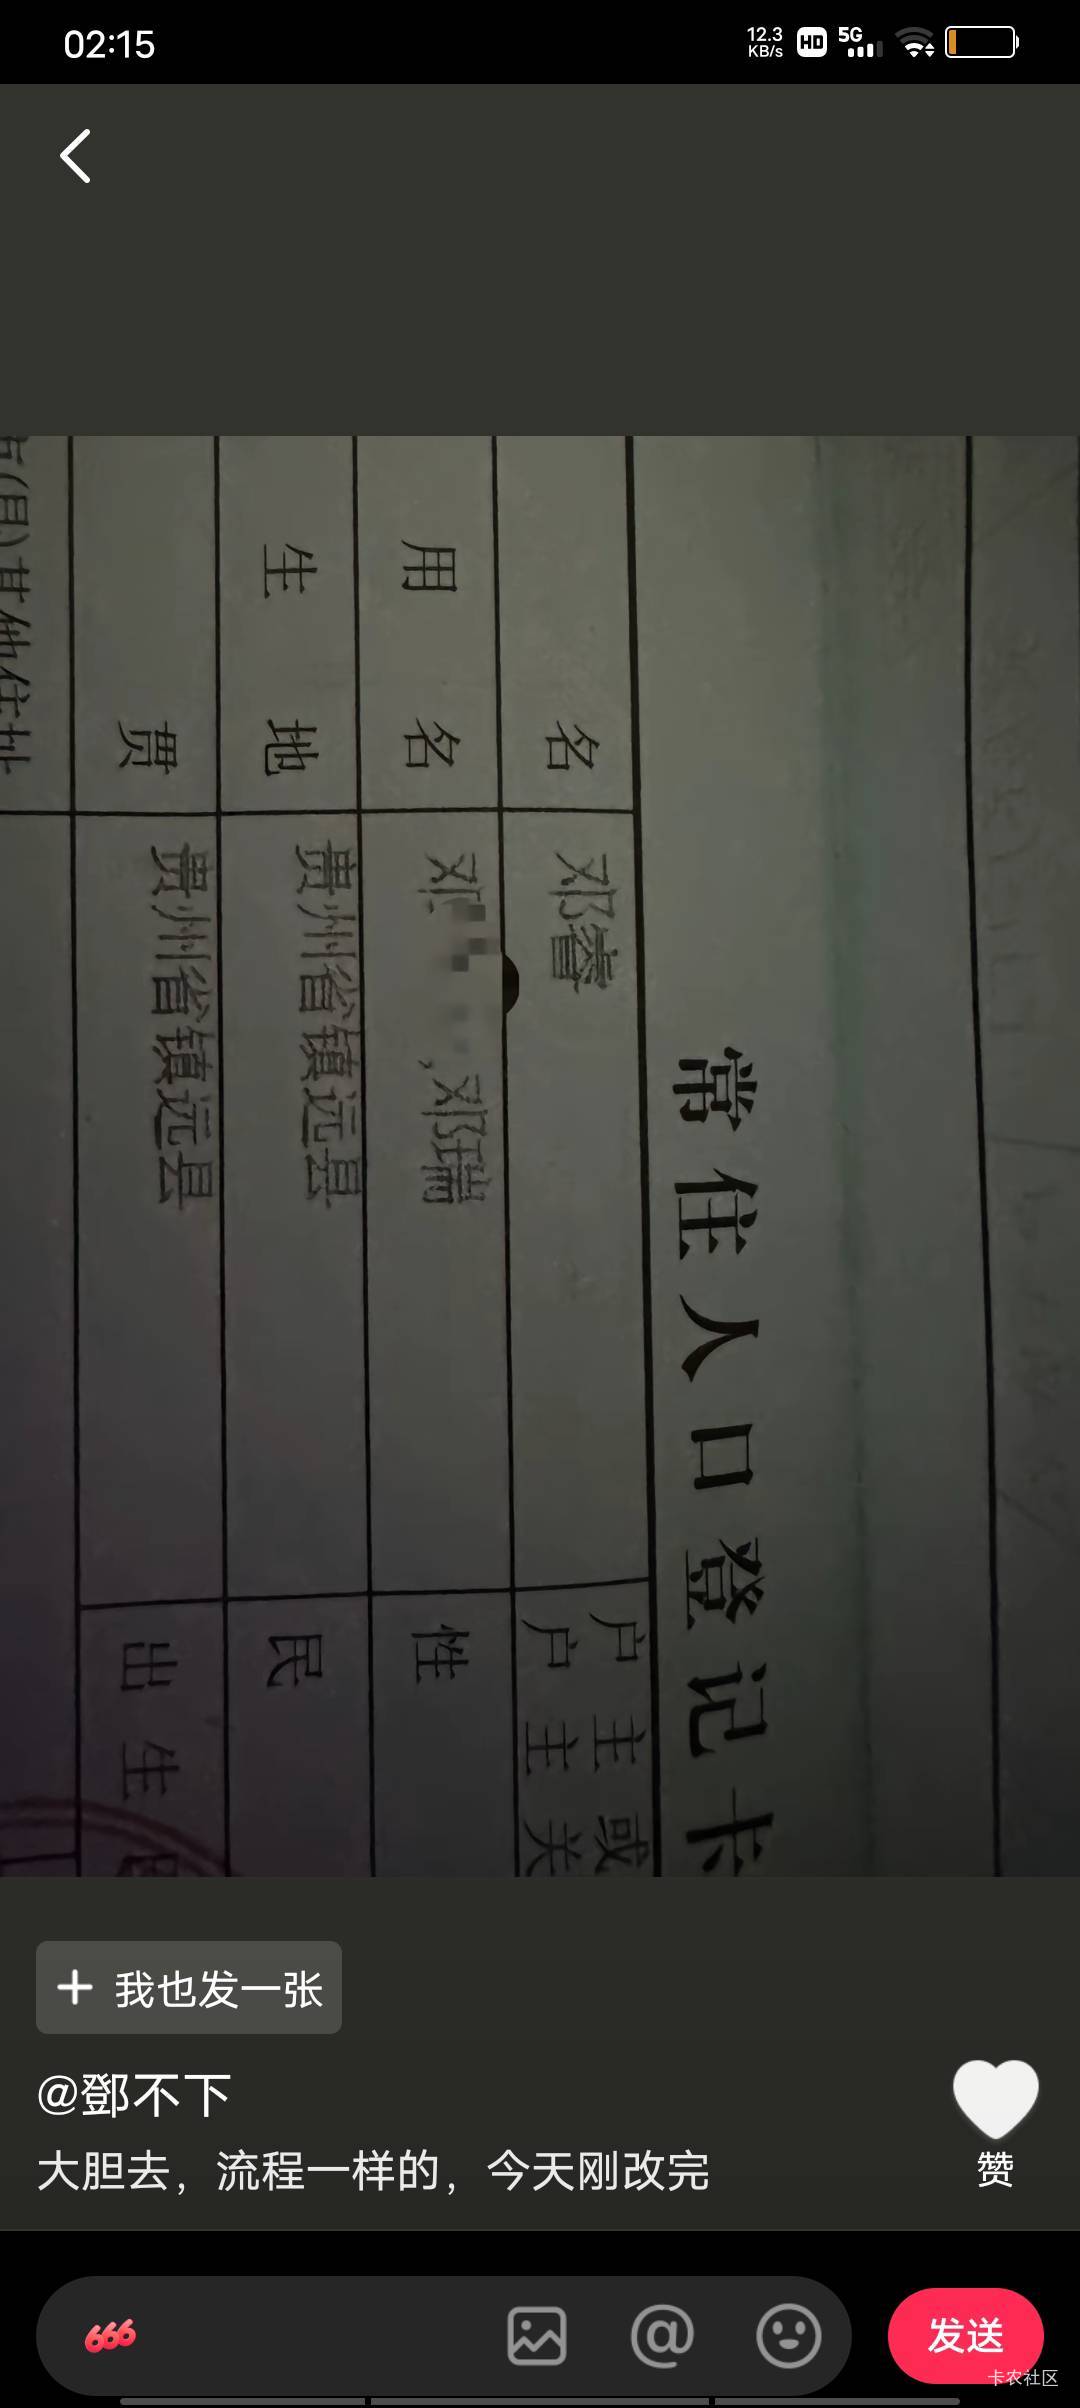 02:15
12.3 KB/s HD 5G
常住人口登记卡
名 邓睿 户主或
户主关
用名 邓 ,邓瑞 性
生地 贵州省镇远县 民
贯 贵州省镇远县 出生
市(县)其他住址
我也发一张
@鄧不下
大胆去，流程一样的，今天刚改完
赞
666
发送
卡农社区